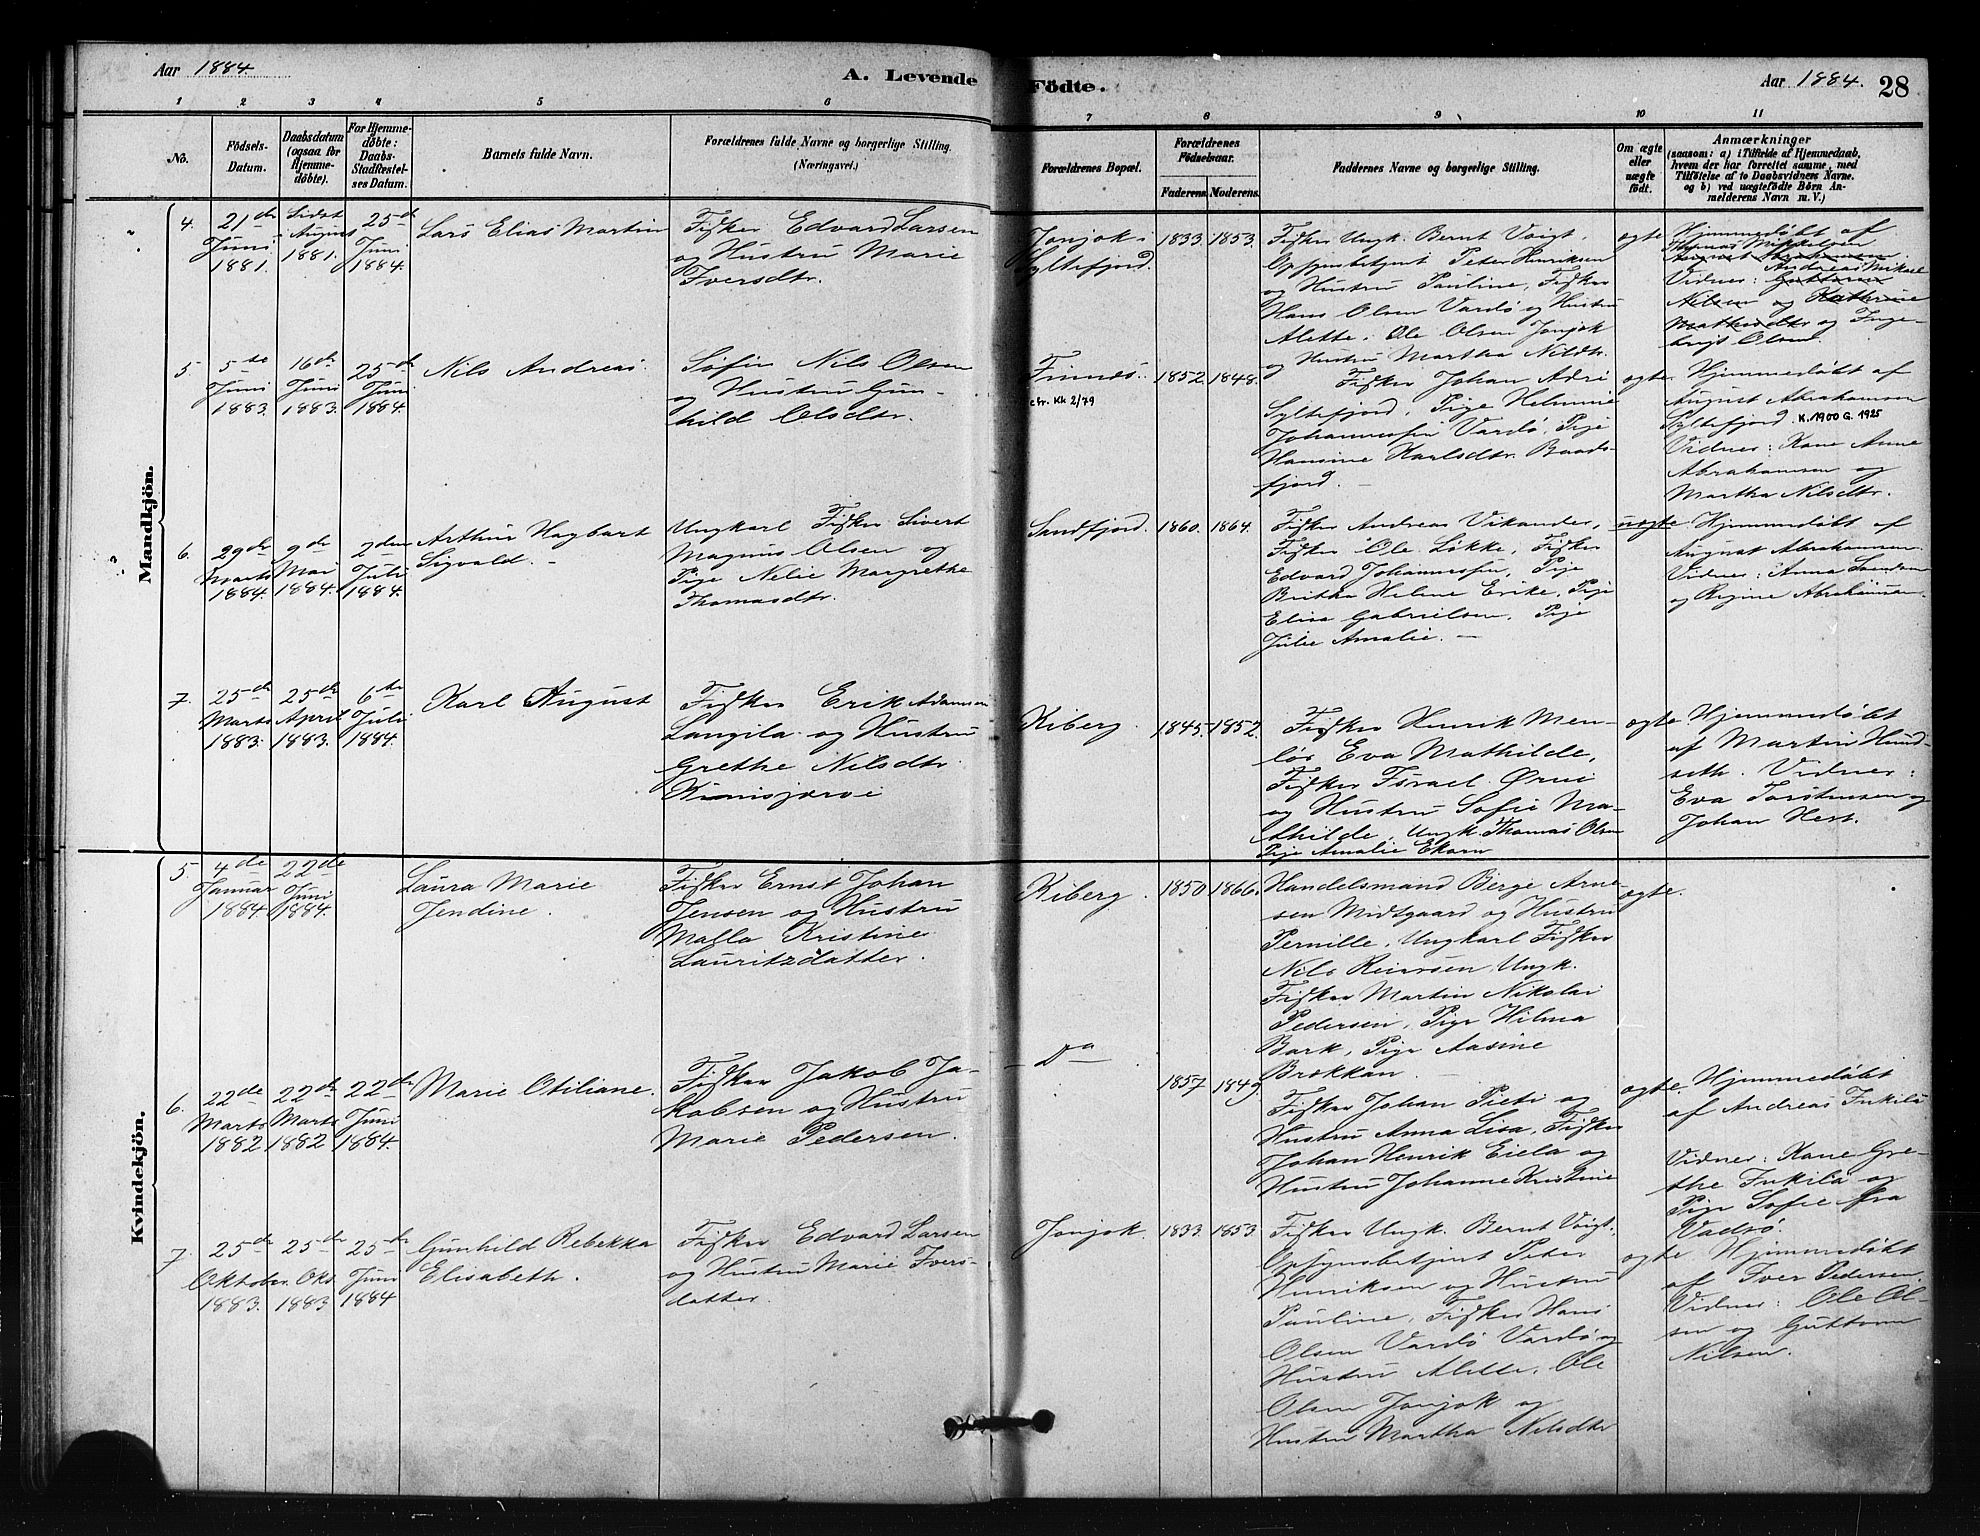 Aar 1884.
A. Levende
Födte.
Aar 1884.
28
1 2 3 4 5 6 7 8 9 10 11
No.
Födsels-
Datum.
Daabsdatum
(ogsaa for
Hjemme-
döbte).
For Hjemme-
döbte:
Daabs-
Stadfæstel-
ses Datum.
Barnets fulde Navn.
Forældrenes fulde Navne og borgerlige Stilling.
(Næringsvei.)
Forældrenes Bopæl.
Forældrenes
Födselsaar.
Faderens.
Moderens.
Faddernes Navne og borgerlige Stilling.
Om ægte
eller
uægte
födt.
Anmærkninger
(saasom: a) i Tilfælde af Hjemmedaab,
hvem der har forrettet samme, med
Tilföielse af to Daabsvidners Navne,
og b) ved uægtefödte Börn An-
melderens Navn m. V.)
Mandkjön.
4.
21de
Juni
1881.
Sidst
i August
1881.
25de
Juni
1884.
Lars Elias Martin
Fisker Edvard Larsen
og Hustru Marie
Iversdtr.
Jonjok i
Syltefjord.
1833.
1853.
Fisker Ungk. Bernt Voigt,
Opsynsbetjent Peter Henriksen
og Hustru Pauline, Fisker
Hans Olsen Vardö og Hustru
Alette, Ole Olsen Jonjok
og Hustru Martha Nilsdtr.
ægte
Hjemmedöbt af
Thomas Mikkelsen
August Abrahamsen
Andreas Mikael
Vidner: Guttorm
Nilsen og Kathrine
Mathisdtr og Inge-
brigt Olsen
5.
5te
Juni
1883.
16de
Juni
1883.
25de
Juni
1884.
Nils Andreas.
Søfin Nils Olsen
og Hustru Gun-
hild Olsdtr.
Finnes.
cfr. Kk 2/79
1852.
1848.
Fisker Johan Adri
Syltefjord, Pige Helmine
Johannessen Vardö, Pige
Hansine Karlsdtr. Baads-
fjord.
ægte
Hjemmedöbt af
August Abrahamsen
Syltefjord. K. 1900 G. 1925
Vidner: Kone Anne
Abrahamsen og
Martha Nilsdtr.
6.
29de
Marts
1884.
9de
Mai
1884.
2den
Juli
1884.
Arthur Hagbart
Sigvald.
Ungkarl Fisker Sivert
Magnus Olsen og
Pige Nelie Margrethe
Thomasdtr.
Sandfjord.
1860.
1864.
Fisker Andreas Vikander,
Fisker Ole Løkke, Fisker
Edvard Johannessen, Pige
Britha Helene Erike, Pige
Elisa Gabrielsen, Pige
Julie Amalie.
uægte
Hjemmedöbt af
August Abrahamsen.
Vidner: Anna
og Regine Abrahamsen.
7.
25de
Marts
1883.
25de
April
1883.
6te
Juli
1884.
Karl August
Fisker Erik Adamsen
Langila og Hustru
Grethe Nilsdtr.
Kiberg.
1845.
1852.
Fisker Henrik Men-
lös Eva Mathilde,
Fisker Israel
og Hustru Sofie Ma-
thilde, Ungk. Thomas Olsen
Pige Amalie Ekorn
ægte
Hjemmedöbt
af Martin Hund-
seth. Vidner:
Eva Torstensen og
Johan Hest.
Kvindekjön.
5.
4de
Januar
1884
22de
Juni
1884.
Laura Marie
Jendine.
Fisker Ernst Johan
Jensen og Hustru
Malla Kristine
Lauritzdatter.
Kiberg.
1850
1866.
Handelsmand Berge Arne-
sen Midtgaard og Hustru
Pernille, Ungkarl Fisker
Nils Reiersen, Ungk.
Fisker Martin Nikolai
Pedersen, Pige Hilma
Bark, Pige Aasine
Brokkan.
ægte.
6.
22de
Marts
1882
22de
Marts
1882
22de
Juni
1884.
Marie Otiliane.
Fisker Jakob Ja-
kobsen og Hustru
Marie Pedersen.
- Do
1857.
1849.
Fisker Johan Pieti og
Hustru Anna Lisa, Fisker
Johan Henrik Eiela og
Hustru Johanne Kristine
ægte.
Hjemmedöbt
af Andreas Inkilä
Vidner: Kone Gre-
the Inkilä og
Pige Sofie fra
Vadsö.
7.
25de
Oktober.
1883.
25de
Okt.
1883
25de
Juni
1884
Gunhild Rebekka
Elisabeth.
Fisker Edvard Larsen
og Hustru Marie Ivers-
datter.
Jonjok.
1833.
1853
Fisker Ungk. Bernt Voigt,
Opsynsbetjent Peter
Henriksen og Hustru
Pauline, Fisker Hans
Olsen Vardö Vardö og
Hustru Alette, Ole
Olsen Jonjok og
Hustru Martha Nilsdtr
ægte
Hjemmedöbt
af Iver Pedersen.
Vidner: Ole Ol-
sen og Guttorm
Nilsen.